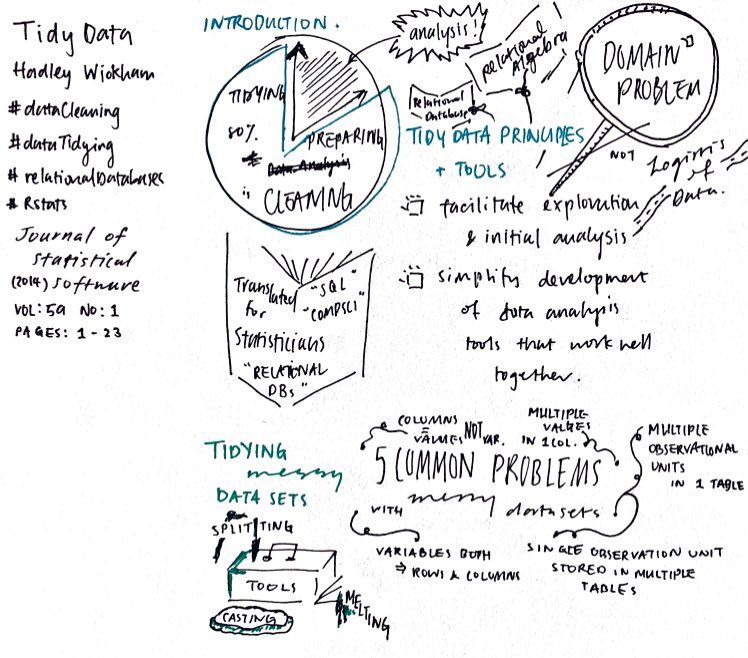 Tidy Data
Hadley Wickham
#dataCleaning
#dataTidying
#relationalDatabases
#Rstats
Journal of
Statistical
(2014) Software
VOL: 59 NO: 1
PAGES: 1 - 23
INTRODUCTION.
analysis!
TIDYING
80%
PREPARING
Data Analysis
is CLEANING
Relational
Algebra
Relational
Databases
DOMAIN
PROBLEM
NOT
Logistics
of
Data.
TIDY DATA PRINCIPLES
+ TOOLS
facilitate exploration
& initial analysis
simplify development
of data analysis
tools that work well
together.
Translated "SQL"
for "COMPSCI"
Statisticians
"RELATIONAL
DBs"
TIDYING
messy
DATA SETS
SPLITTING
TOOLS
CASTING
MELTING
COLUMNS
= VALUES NOT VAR.
MULTIPLE
VALUES
IN 1 COL.
MULTIPLE
OBSERVATIONAL
UNITS
IN 1 TABLE
5 COMMON PROBLEMS
WITH messy datasets
VARIABLES BOTH
⇒ ROWS & COLUMNS
SINGLE OBSERVATION UNIT
STORED IN MULTIPLE
TABLES